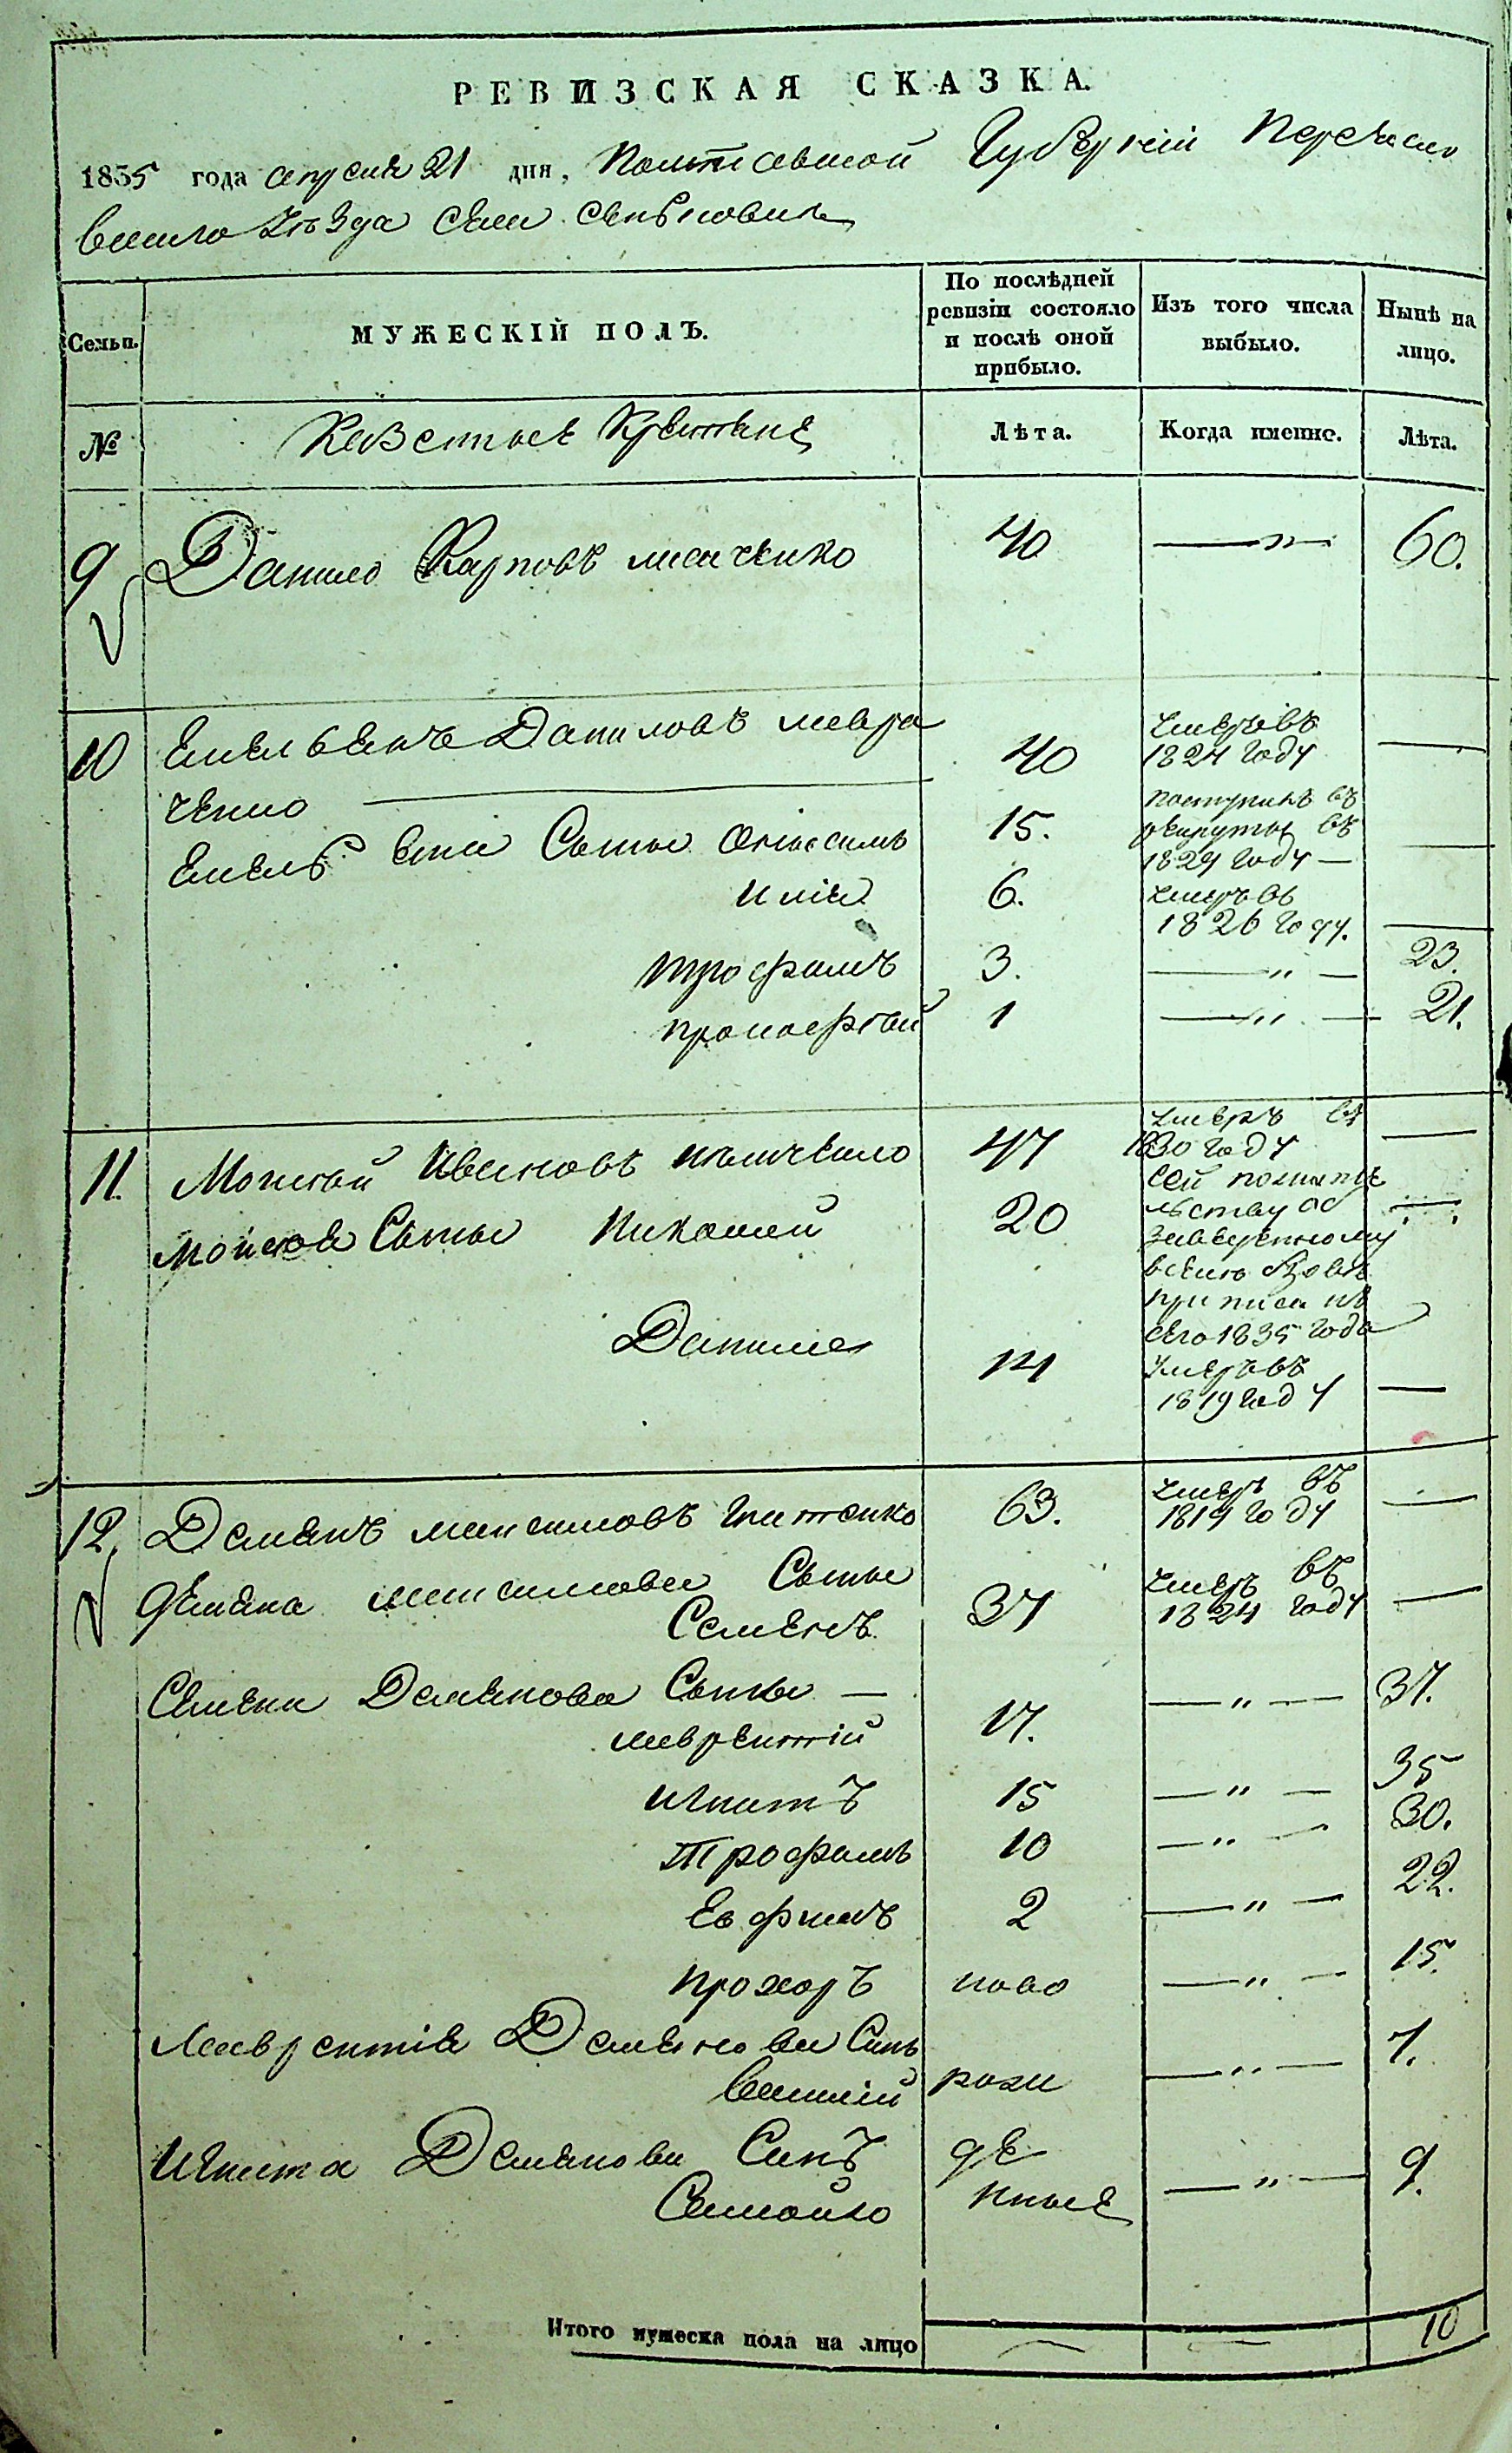 РЕВИЗСКАЯ СКАЗКА.
1835 года апреля 21 дня, Полтавской Губерніи Переясло
вского уѣзда села
Семьи.
МУЖЕСКІЙ ПОЛЪ.
По послѣдней
ревизіи состояло
и послѣ оной
прибыло.
Изъ того числа
выбыло.
Нынѣ на
лицо.
№
Казенные Крестьяне
Лѣта.
Когда именно.
Лѣта.
9 Данило Карповъ 40 —„— 60.
10 Емельянъ Даниловъ Лавра 40 умеръ въ 1824 году —
ченко
Емель Сыны 15. поступилъ въ рекруты въ 1829 году — —
Илія 6. умеръ въ 1826 году. —
Трофимъ 3. —„— 23.
Прокофій 1 —„— 21.
11. Моисей Ивановъ 47 умеръ въ 1830 году —
Моисея Сыны Николай 20
приписанъ
сего 1835 года
Данило 14 умеръ въ 1819 году —
12. Демянъ Максимовъ 63. умеръ въ 1819 году —
Демяна Максимова Сыны
Семенъ 37 умеръ въ 1824 году —
Семена Демянова Сыны —
Лаврентій 17. —„— 37.
Игнатъ 15 —„— 35
Трофимъ 10 —„— 30.
Евфимъ 2 —„— 22.
Прохоръ ново —„— 15.
Лаврентія Демянова Синъ
Василій рожи —„— 7.
Игната Демянова Синъ де
Самойло нные —„— 9.
Итого мужеска пола на лицо 10